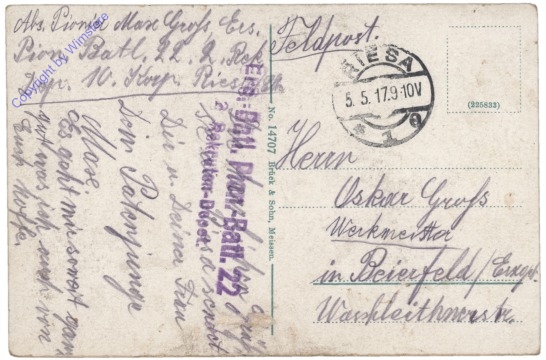 Abs. Pionier Max Groß Ers.
Pion Batl. 22. 2. Rek
Dep. 10. Korp. Riesa
Feldpost.
RIESA
5. 5. 17. 9-10V
(225833)
Ers.-Batl. Pion.-Batl. 22
2. Rekruten-Depot
No. 14707 Brück & Sohn, Meissen.
Herrn
Oskar Groß
Werkmeister
in Beierfeld/Erzgeb
Waschleithnerstr.
sendet
Dir u. Deiner Frau
Dein Patenjunge
Max
Es geht mir sonst ganz
gut was ich auch von
Euch hoffe.
Copyright by Wimstore